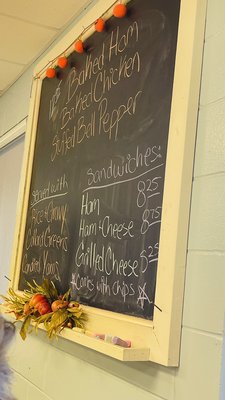 Baked Ham
Baked Chicken
Stuffed Bell Pepper
Served with
Rice & Gravy
Collard Greens
Candied Yams
Sandwiches:
Ham 8.25
Ham & Cheese 8.75
Grilled Cheese 5.25
☆Comes with chips☆